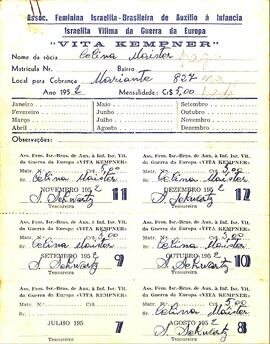 Assoc. Feminina Israelita-Brasileira de Auxílio à Infancia
Israelita Vitima da Guerra da Europa
"VITA KEMPNER"
Nome da sócia Celina Maister
Matrícula Nr. Bairro
Local para Cobrança Mariante 827
Ano 1952 Mensalidade: Cr$ 5,00
Janeiro Maio Setembro
Fevereiro Junho Outubro
Março Julho Novembro
Abril Agosto Dezembro
Observações:
Ass. Fem. Isr.-Bras. de Aux. à Inf. Isr. Vit. da Guerra da Europa «VITA KEMPNER»
Matr. Nº Cr$ 5,00
Celina Maister
NOVEMBRO 1952 11
S. Schwartz
Tesoureira
Ass. Fem. Isr.-Bras. de Aux. à Inf. Isr. Vit. da Guerra da Europa «VITA KEMPNER»
Matr. Nº Cr$ 5,00
Celina Maister
DEZEMBRO 1952 12
S. Schwartz
Tesoureira
Ass. Fem. Isr.-Bras. de Aux. à Inf. Isr. Vit. da Guerra da Europa «VITA KEMPNER»
Matr. Nº Cr$ 5,00
Celina Maister
SETEMBRO 1952 9
S. Schwartz
Tesoureira
Ass. Fem. Isr.-Bras. de Aux. à Inf. Isr. Vit. da Guerra da Europa «VITA KEMPNER»
Matr. Nº Cr$ 5,00
Celina Maister
OUTUBRO 1952 10
S. Schwartz
Tesoureira
Ass. Fem. Isr.-Bras. de Aux. à Inf. Isr. Vit. da Guerra da Europa «VITA KEMPNER»
Matr. Nº Cr$
JULHO 195 7
Tesoureira
Ass. Fem. Isr.-Bras. de Aux. à Inf. Isr. Vit. da Guerra da Europa «VITA KEMPNER»
Matr. Nº Cr$ 5,00
Celina Maister
AGOSTO 1952 8
S. Schwartz
Tesoureira